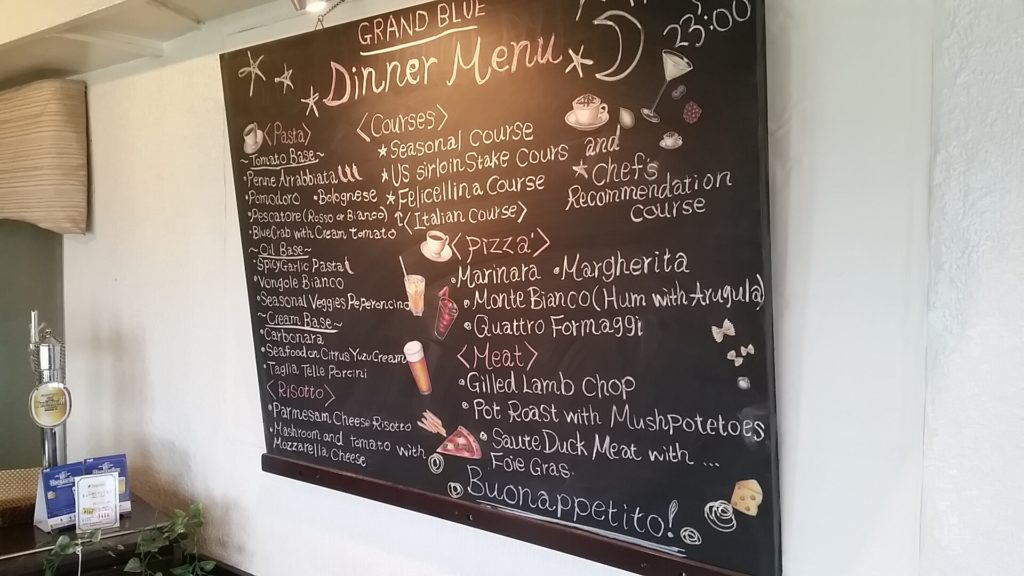 GRAND BLUE
Dinner Menu
23:00
<Pasta>
~Tomato Base~
•Penne Arrabbiata
•Pomodoro •Bolognese
•Pescatore (Rosso or Bianco)
•Blue Crab with Cream Tomato
~Oil Base~
•Spicy Garlic Pasta
•Vongole Bianco
•Seasonal Veggies Peperoncino
~Cream Base~
•Carbonara
•Seafood on Citrus Yuzu Cream
•Taglia Telle Porcini
<Risotto>
•Parmesam Cheese Risotto
•Mashroom and tomato with
Mozzarella Cheese
<Courses>
★Seasonal Course
★US Sirloin Stake Cours
★Felicellina Course
↑<Italian Course>
and
★Chef's
Recommendation
Course
<Pizza>
•Marinara •Margherita
•Monte Bianco (Hum with Arugula)
•Quattro Formaggi
<Meat>
•Gilled Lamb Chop
•Pot Roast with Mushpotetoes
•Saute Duck Meat with ...
Foie Gras.
Buonappetito!